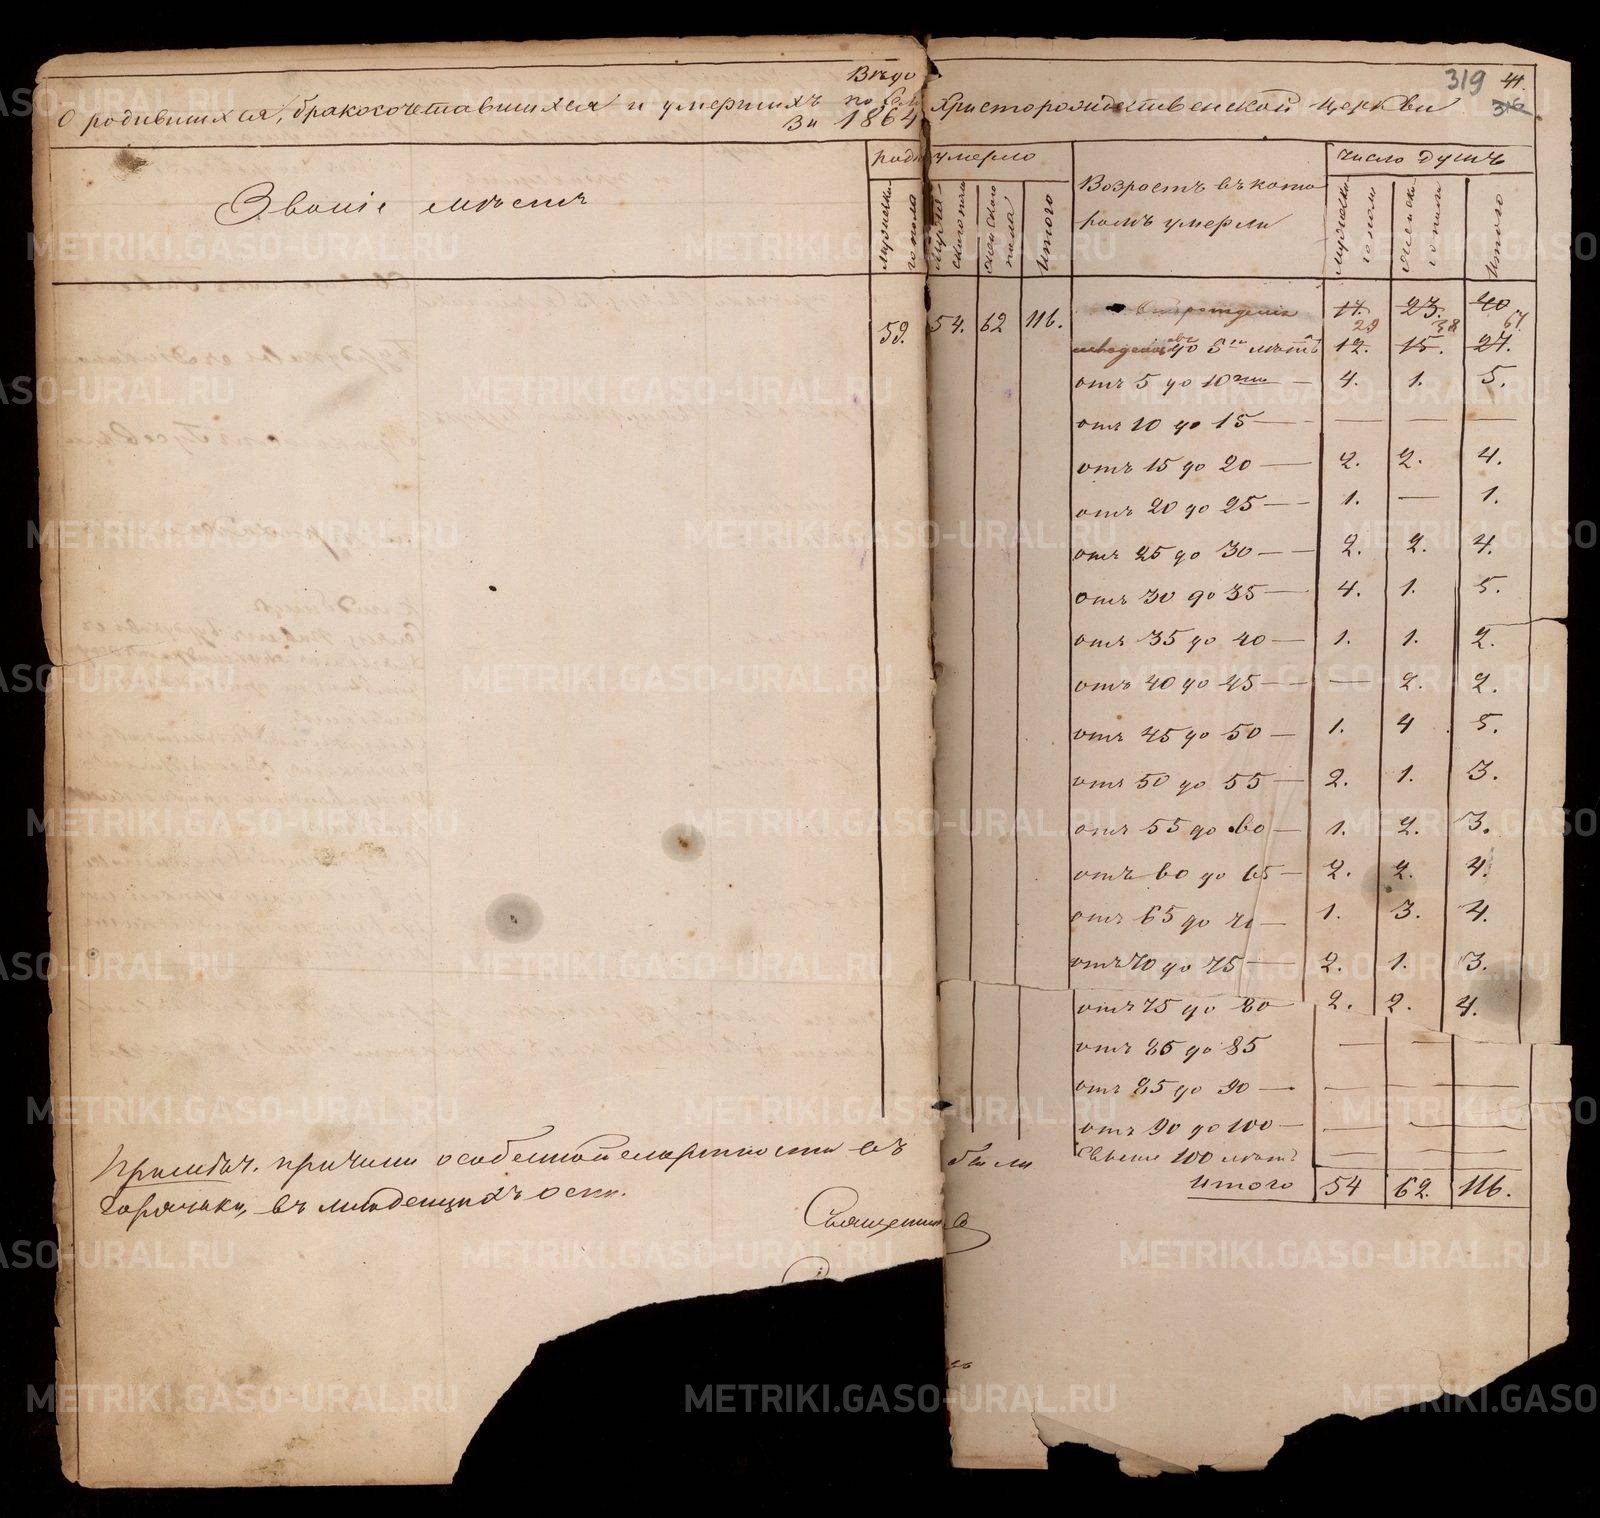 Вѣдо
О родившихся, бракосочетавшихся и умершихъ по
Христорождественской церкви
За 1864
319
41.
316
Званіе мѣстъ
роди
умерло
Возрастъ въ кото
ромъ умерли
число душъ
мужеска
го пола
мужес
скаго пола
женскаго
пола
Итого
мужеска
го пола
женска
го пола
Итого
59.
54. 62 116.
отъ рожденія 17. 23. 40
29 38 67.
до 5ти лѣтъ 12. 15. 27.
отъ 5 до 10ти — 4. 1. 5.
отъ 10 до 15 — — — —
отъ 15 до 20 — 2. 2. 4.
отъ 20 до 25 — 1. — 1.
отъ 25 до 30 — 2. 2. 4.
отъ 30 до 35 — 4. 1. 5.
отъ 35 до 40 — 1. 1. 2.
отъ 40 до 45 — — 2. 2.
отъ 45 до 50 — 1. 4 5.
отъ 50 до 55 — 2. 1. 3.
отъ 55 до 60 — 1. 2. 3.
отъ 60 до 65 — 2. 2. 4.
отъ 65 до 70 — 1. 3. 4.
отъ 70 до 75 — 2. 1. 3.
отъ 75 до 80 2. 2. 4.
отъ 80 до 85 — —
отъ 85 до 90 — — — —
отъ 90 до 100 — — — —
Свыше 100 лѣтъ — — —
Итого 54 62. 116.
Примѣч. причини особенной смертности въ
были
горячки, въ младенцахъ оспи.
Священник
METRIKI.GASO-URAL.RU